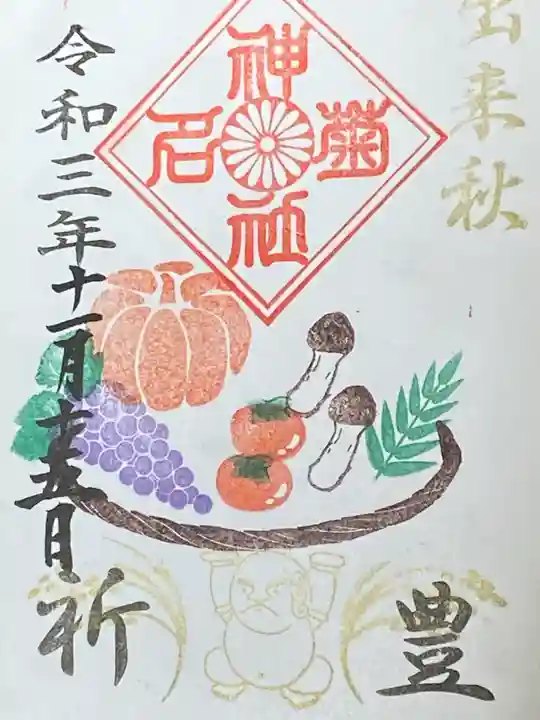 出来秋
豊
菊
神
社
名
令和三年十一月十五日
祈